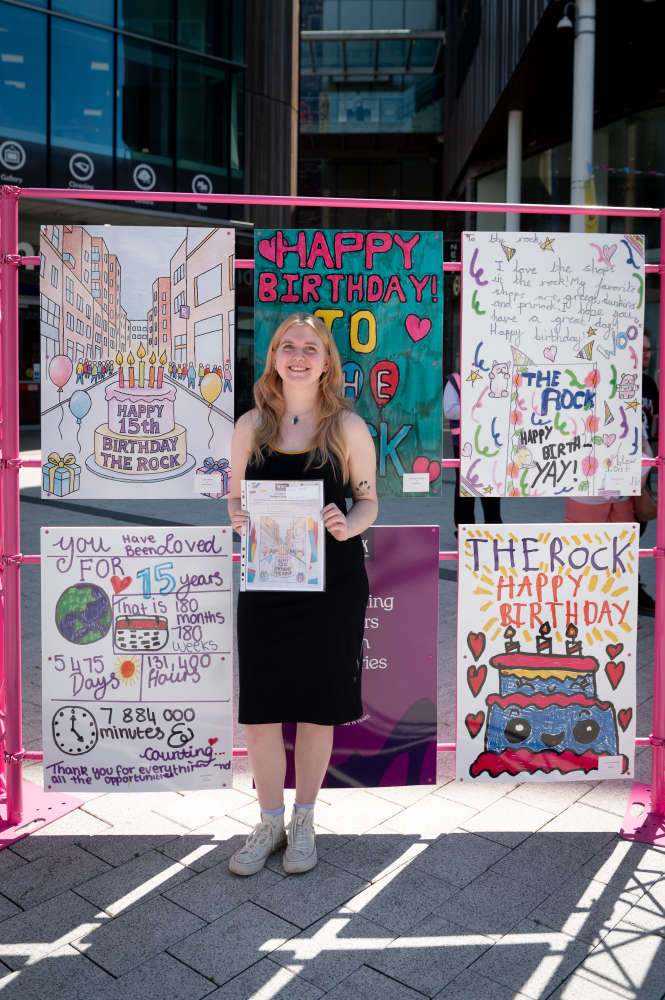 Gallery
Cleaning
HAPPY
15th
BIRTHDAY
THE ROCK
HAPPY
BIRTHDAY!
TO
THE
ROCK
To the rock
I love the shops
in the rock! My favorite
shops are greggs, dunkins
and primark. I hope you
have a great day!
Happy birthday
THE
ROCK
HAPPY
BIRTH-
YAY!
YOU HAVE BEEN LOVED
FOR 15 years
THAT is 180
months
780
weeks
5475
Days
131,400
Hours
7 884 000
minutes &
Counting...
Thank you for everything and
all the opportunities
THE ROCK
HAPPY
BIRTHDAY